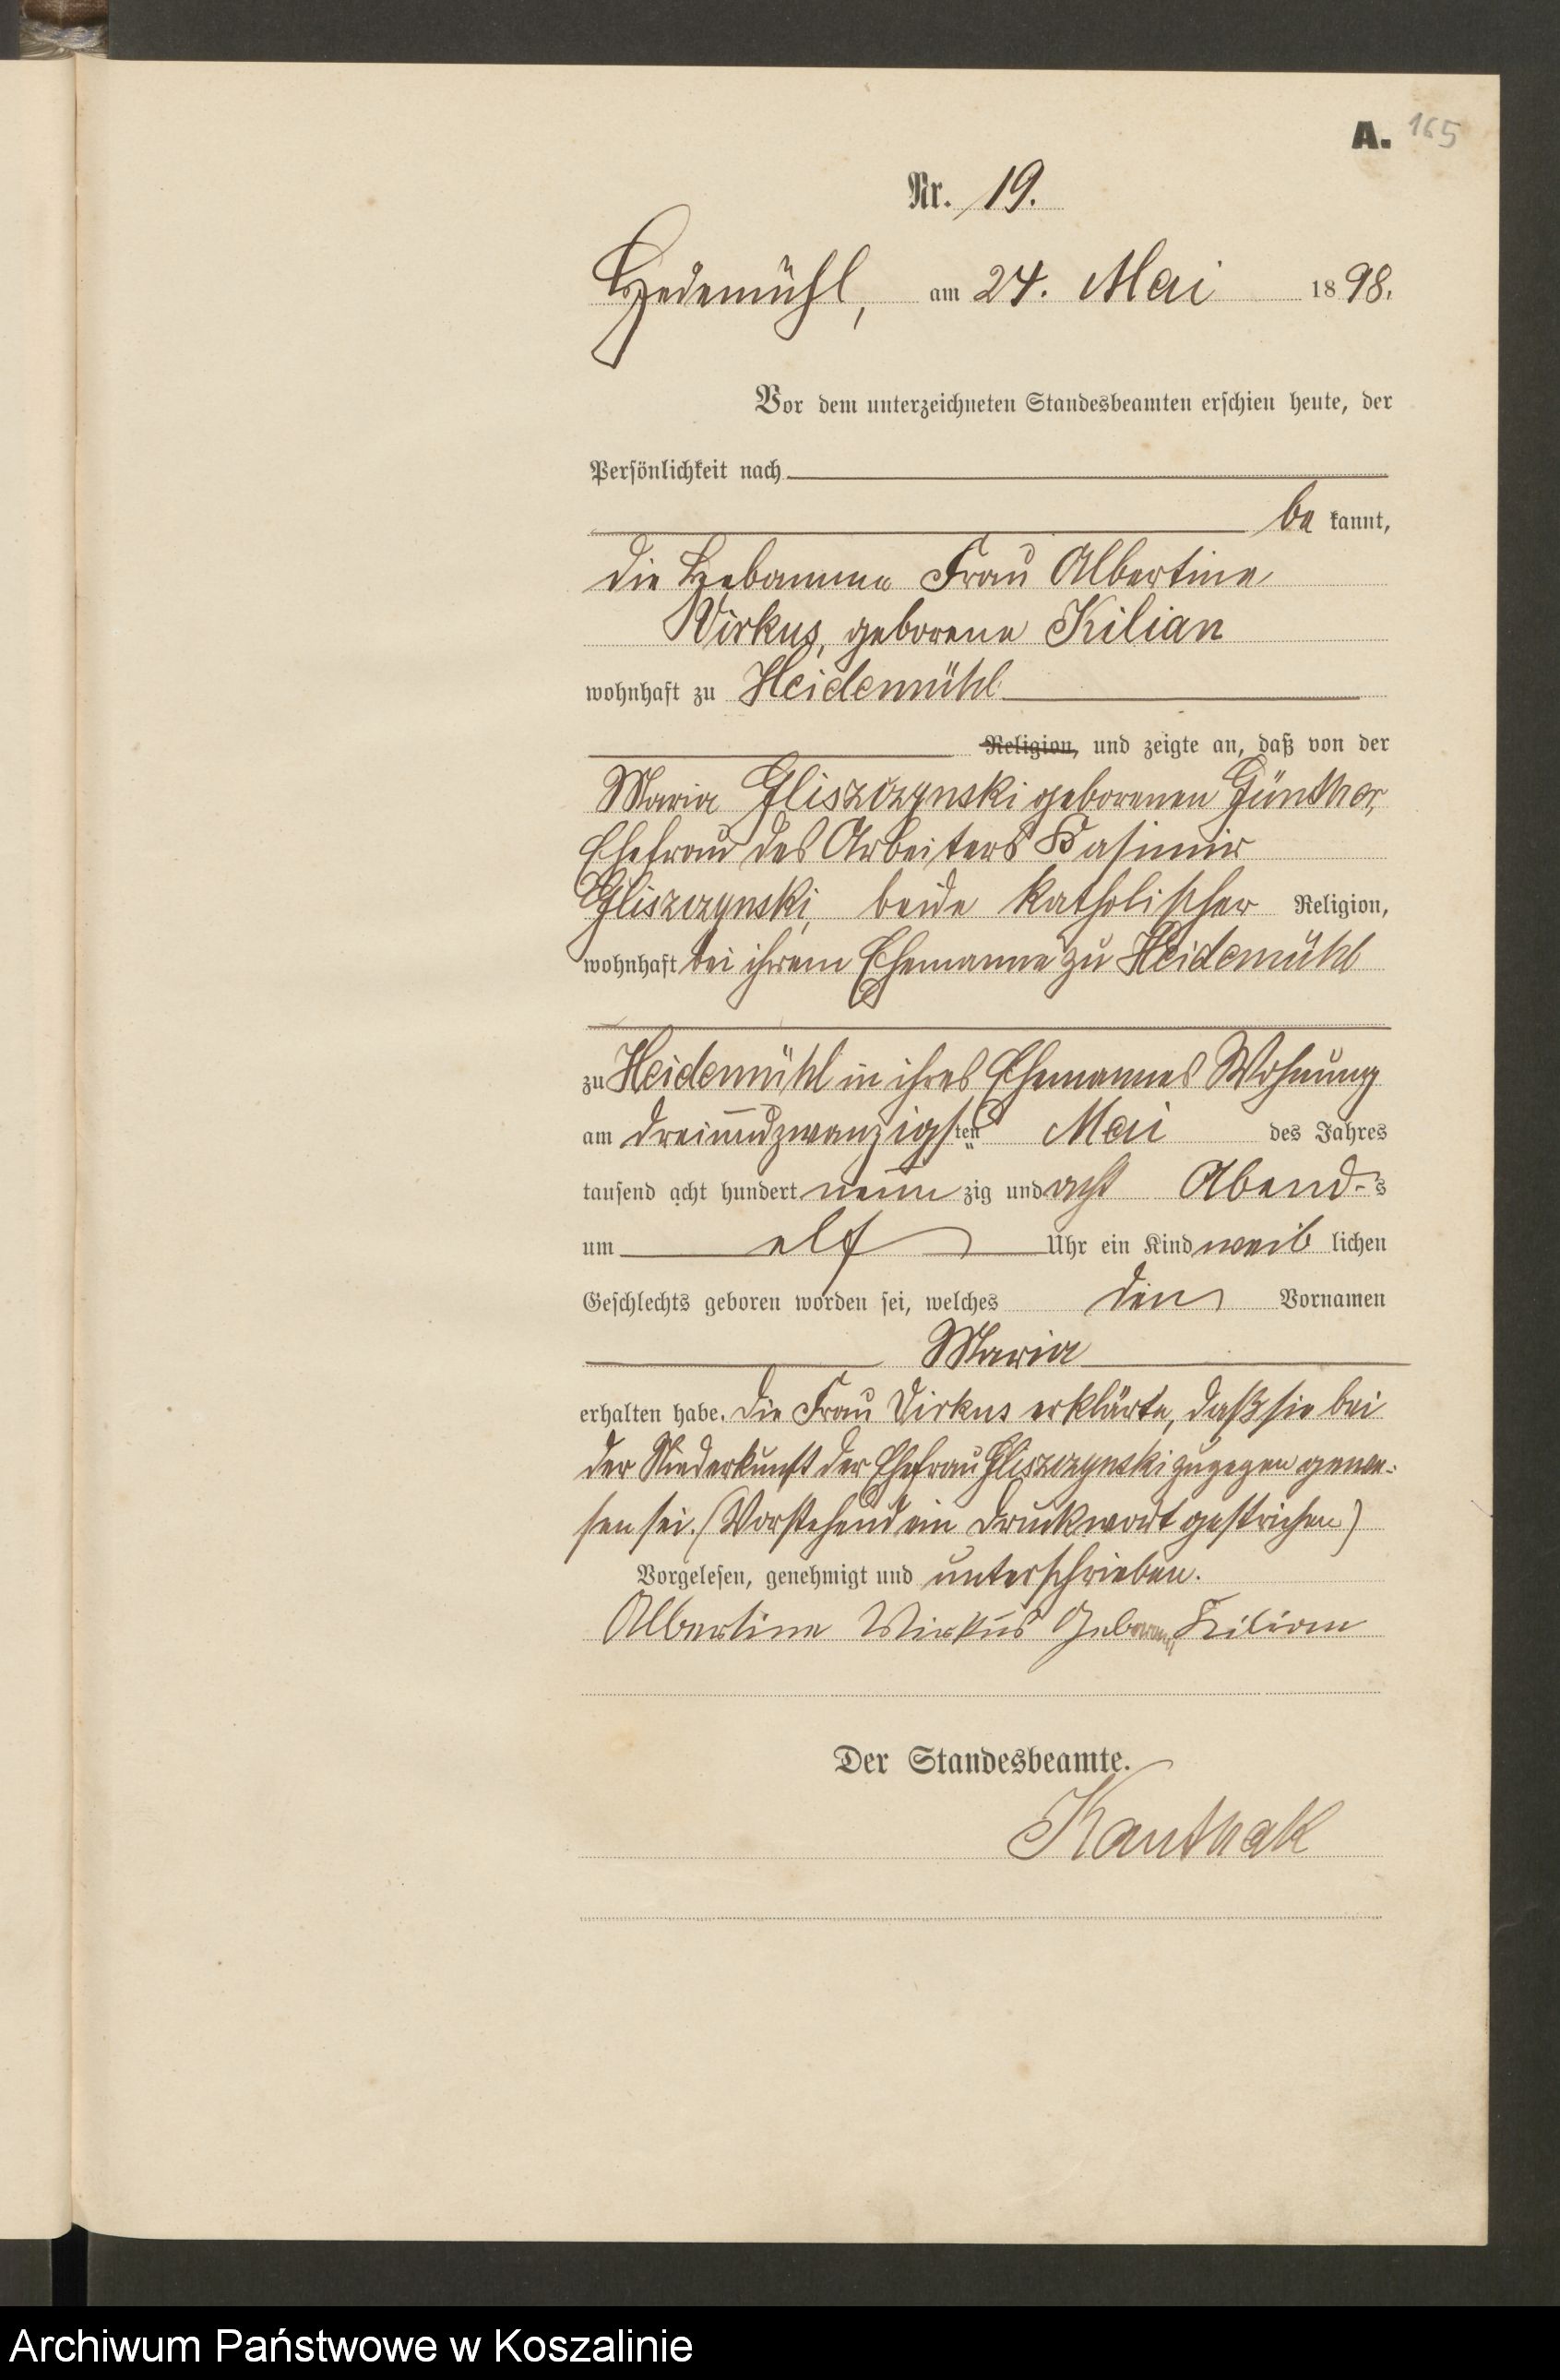 A. 165
Nr. 19.
Hedemühl, am 24. Mai 1898.
Vor dem unterzeichneten Standesbeamten erschien heute, der
Persönlichkeit nach
be kannt,
die Hebamme Frau Albertine
Virkus, geborene Kilian
wohnhaft zu Heidemühl
Religion, und zeigte an, daß von der
Maria Gliszczynski geborenen Günther,
Ehefrau des Arbeiters Kasimir
Gliszczynski, beide katholischer Religion,
wohnhaft bei ihrem Ehemanne zu Heidemühl
zu Heidemühl in ihres Ehemannes Wohnung
am dreiundzwanzigsten Mai des Jahres
tausend acht hundert neun zig und acht Abend-s
um elf Uhr ein Kind weib lichen
Geschlechts geboren worden sei, welches den Vornamen
Maria
erhalten habe. Die Frau Virkus erklärte, daß sie bei
der Niederkunft der Ehefrau Gliszczynski zugegen gewe-
sen sei. (Vorstehend ein Druckwort gestrichen)
Vorgelesen, genehmigt und unterschrieben.
Albertine Wirkus Geborene Kilian
Der Standesbeamte.
Kauthak
Archiwum Państwowe w Koszalinie